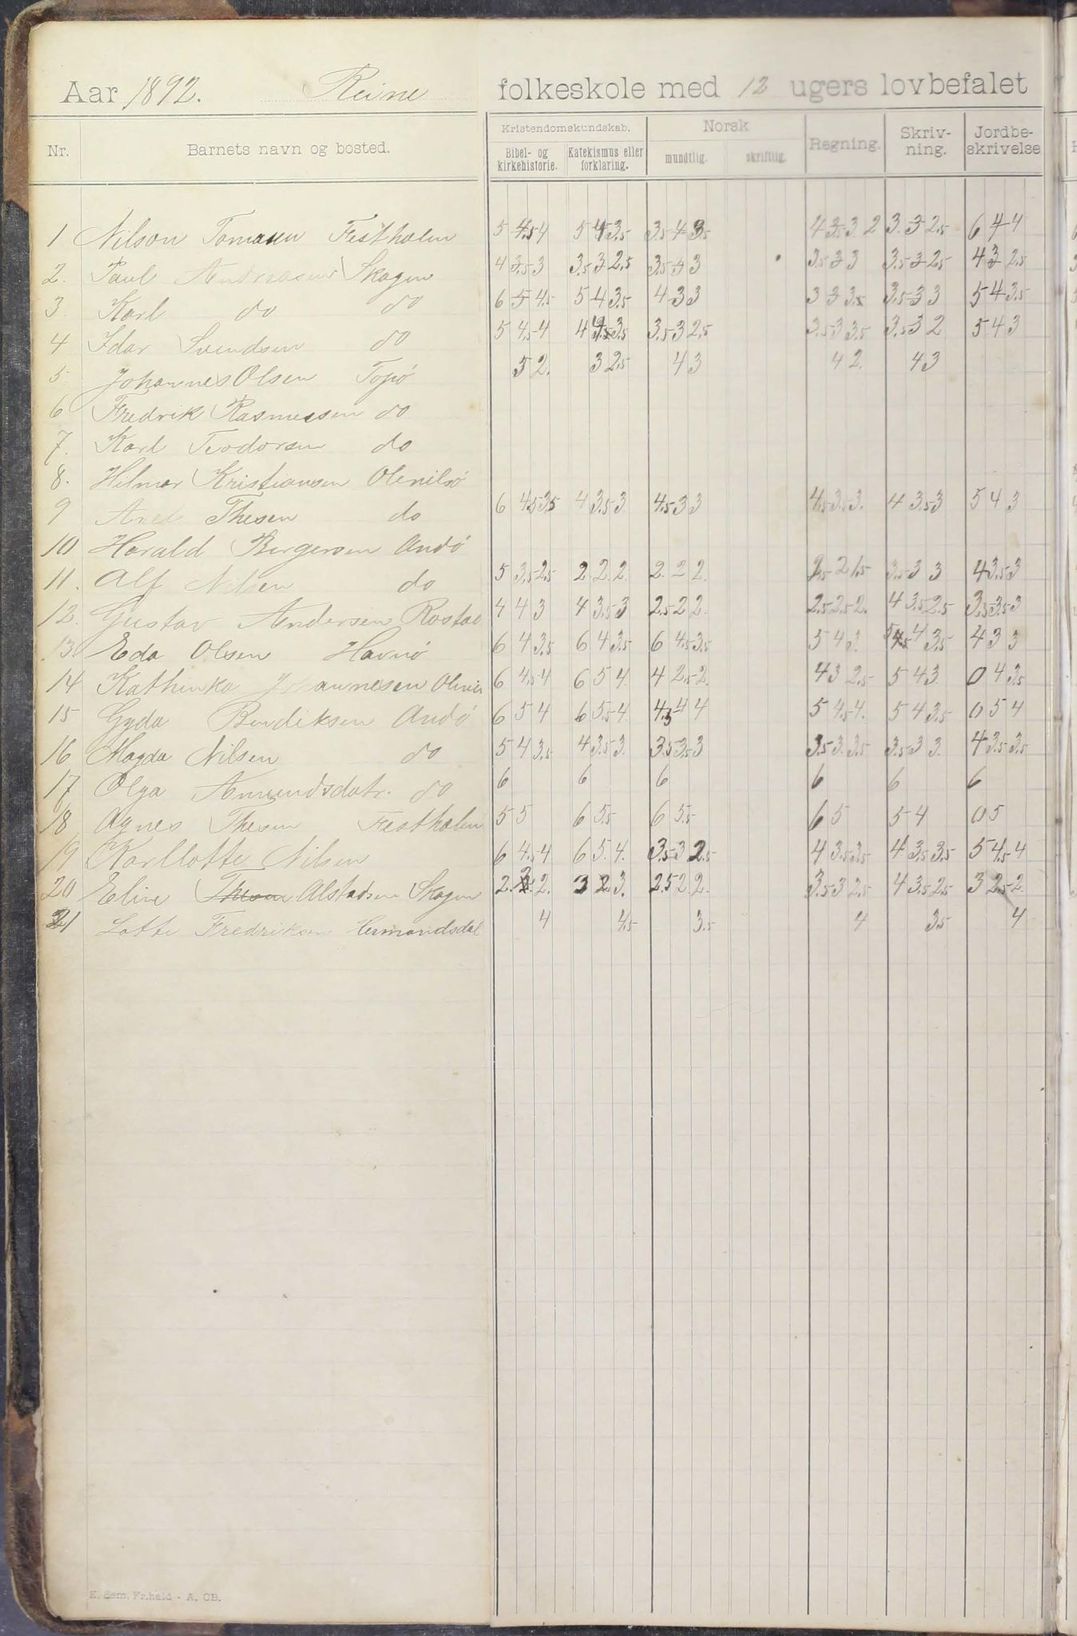 Aar 1892. Reine folkeskole med 12 ugers lovbefalet
Nr. Barnets navn og bosted. Kristendomskundskab. Norsk Regning. Skriv-ning. Jordbe-skrivelse
Bibel- og kirkehistorie. Katekismus eller forklaring. mundtlig. skriftlig.
1 Nilson Tomassen Festholen 5 4.5 4 5 4 3.5 3.5 4 3.5 4 3.5 3 2 3. 3 2.5 6 4 4
2. Paul Andreasen Skagen 4 3.5 3 3.5 3 2.5 3.5 3 3 3.5 3 3 3.5 3 2.5 4 3 2.5
3 Karl do do 6 5 4.5 5 4 3.5 4 3 3 3 3 3.5 3.5 3 3 5 4 3.5
4 Idar Svendsen do 5 4.5 4 4 3.5 3.5 3 2.5 3.5 3 3.5 3.5 3 2 5 4 3
5 Johannes Olsen Topø 5 2. 3 2.5 4 3 4 2. 4 3
6 Fredrik Rasmussen do
7. Karl Teodorsen do
8. Hilmar Kristiansen Olenilsø
9 Thesen do 6 4.5 3.5 4 3.5 3 4.5 3 3 4.5 3.5 3. 4 3.5 3 5 4 3
10 Harald Birgersen Andø
11. Alf Nilsen do 5 3.5 2.5 2 2 2 2 2 2 2.5 2 1.5 3.5 3 3 4 3.5 3
12. Gustav Andersen Rostad 4 4 3 4 3.5 3 2.5 2 2 2.5 2.5 2. 4 3.5 2.5 3.5 3.5 3
13. Eda Olsen Havnø 6 4 3.5 6 4 3.5 6 4.5 3.5 5 4 3. 4 3.5 4 3 3
14 Kathinka Johannesen 6 4.5 4 6 5 4 4 2.5 2. 4 3 2.5 5 4 3 0 4 3.5
15 Gyda Bendiksen Andø 6 5 4 6 5.5 4 4.5 4 4 5 4.5 4. 5 4 3.5 0 5 4
16 Magda Nilsen do 5 4 3.5 4 3.5 3. 3.5 3.5 3 3.5 3. 3.5 3.5 3 3. 4 3.5 3.5
17 Olga Amundsdatr. do 6 6 6 6 6 6
18 Agnes Thesen Festholen 5 5 6 5.5 6 5.5 6 5 5 4 0 5
19 Karllotte Nilsen 6 4.5 4 6 5. 4. 3.5 3 2.5 4 3.5 3.5 4 3.5 3.5 5 4.5 4
20 Eline Thesen Alstadsen Skagen 2. 2. 3 2 3. 2.5 2 2. 3.5 3 2.5 4 3.5 2.5 3 2.5 2
21 Lotte Fredriksen Hermandsdal 4 4.5 3.5 4 3.5 4